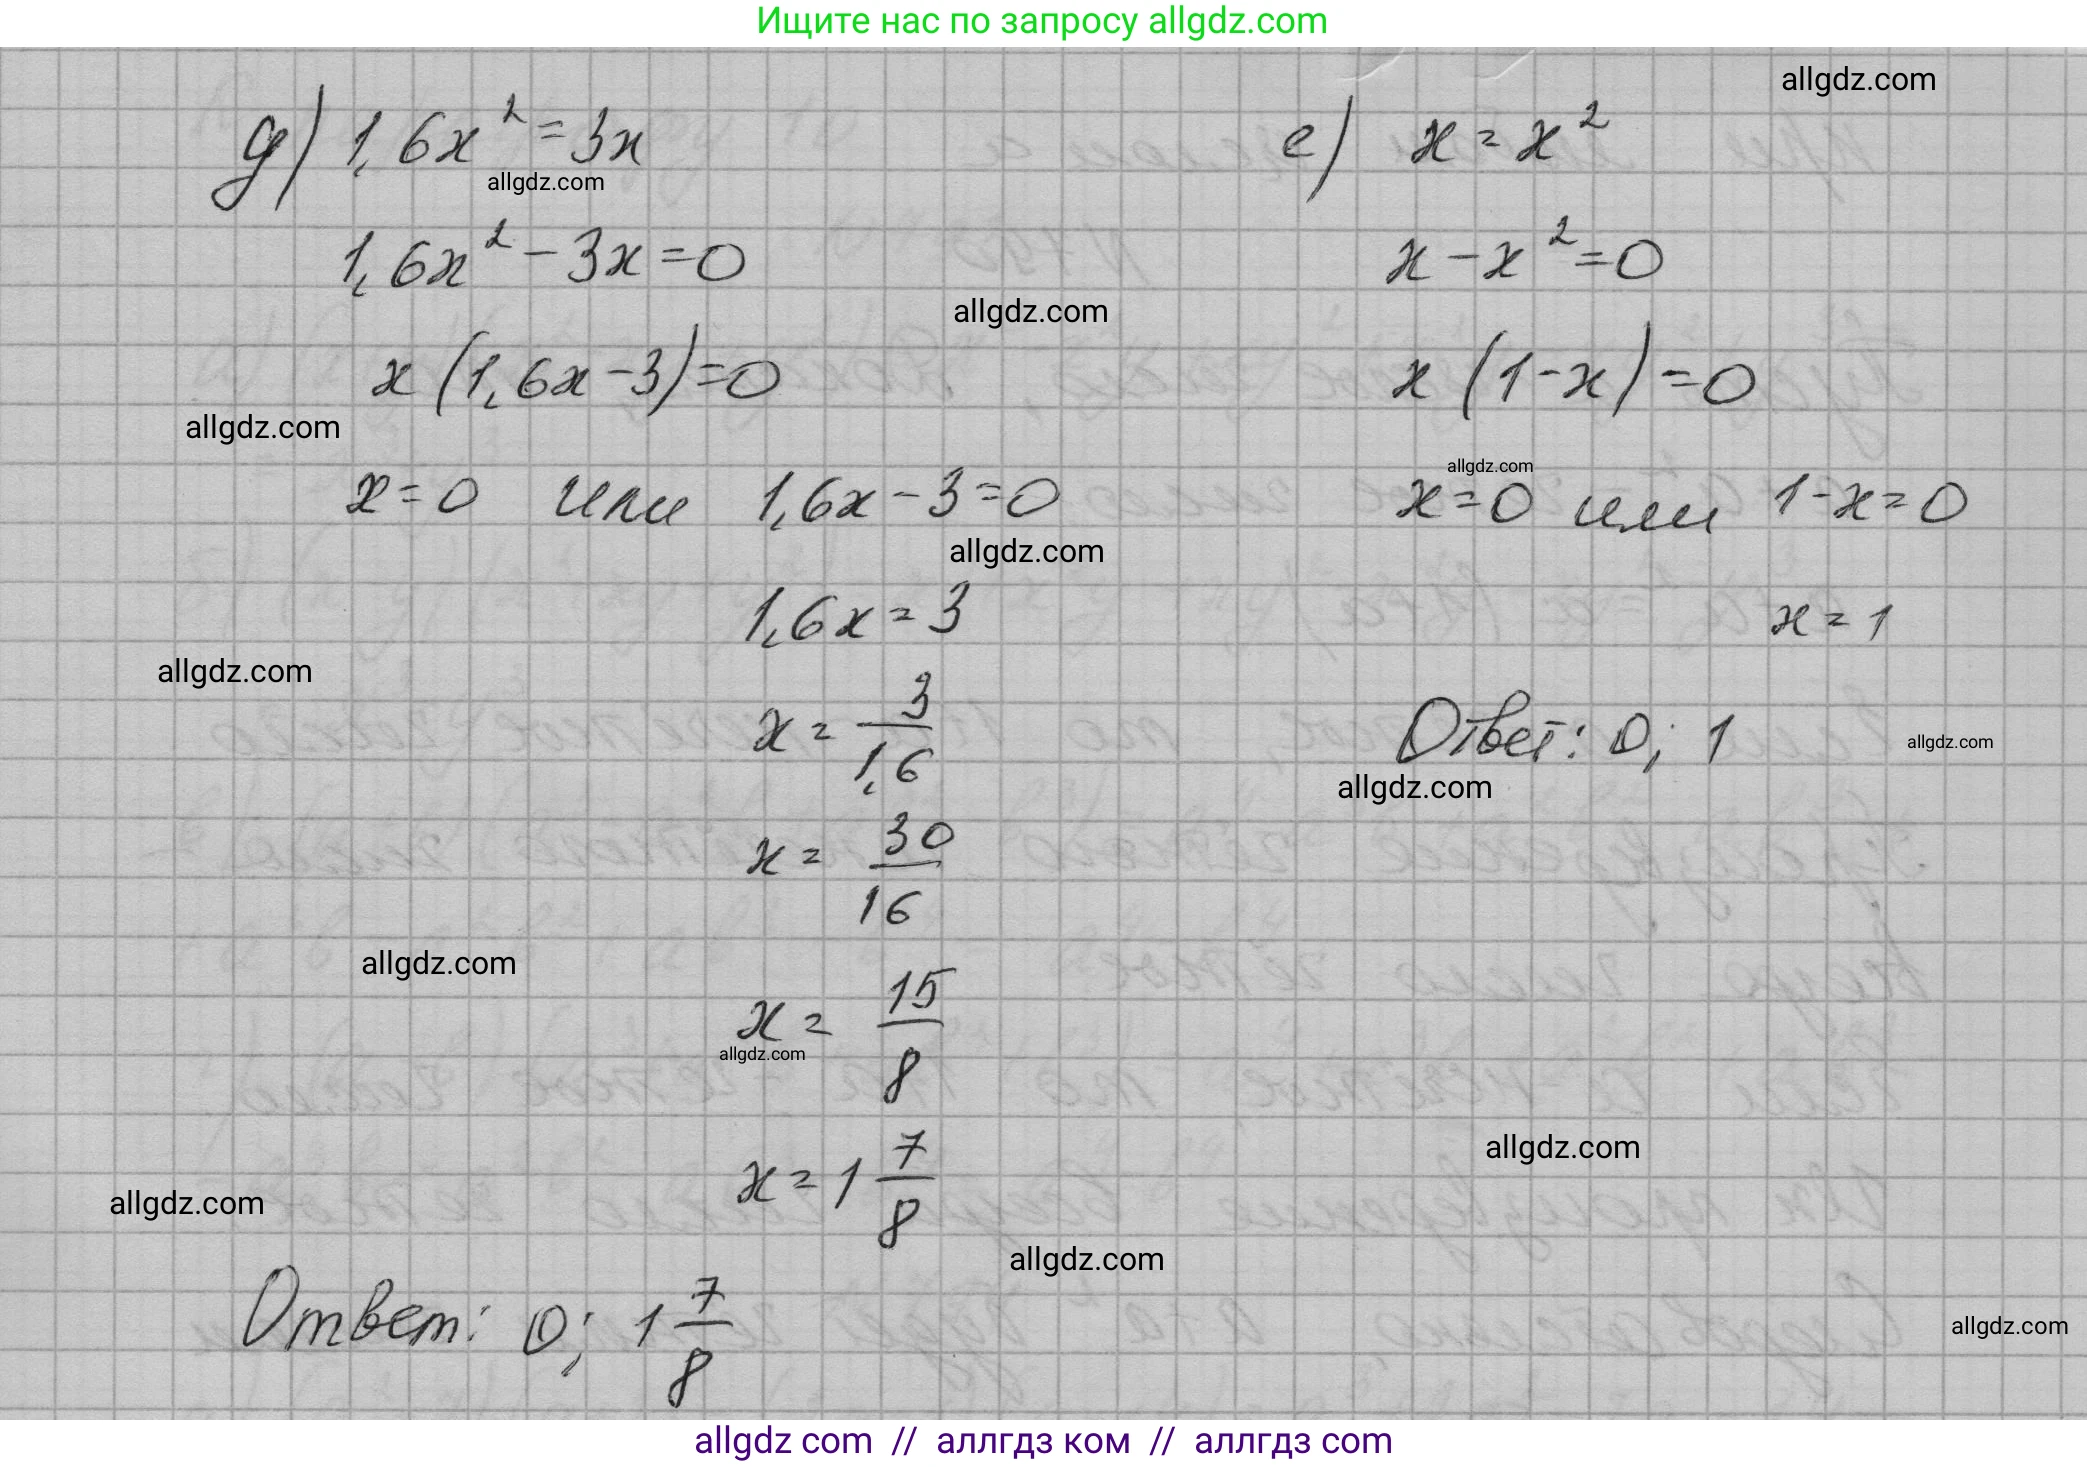 Ищите нас по запросу allgdz.com
allgdz.com
д) 1,6x² = 3x
allgdz.com
1,6x² - 3x = 0
allgdz.com
x(1,6x - 3) = 0
allgdz.com
x = 0 или 1,6x - 3 = 0
allgdz.com
1,6x = 3
allgdz.com
x = 3/1,6
x = 30/16
allgdz.com
x = 15/8
allgdz.com
x = 1 7/8
allgdz.com
allgdz.com
Ответ: 0; 1 7/8
е) x = x²
x - x² = 0
x(1 - x) = 0
allgdz.com
x = 0 или 1 - x = 0
x = 1
Ответ: 0; 1
allgdz.com
allgdz.com
allgdz.com
allgdz.com
allgdz com // аллгдз ком // аллгдз com